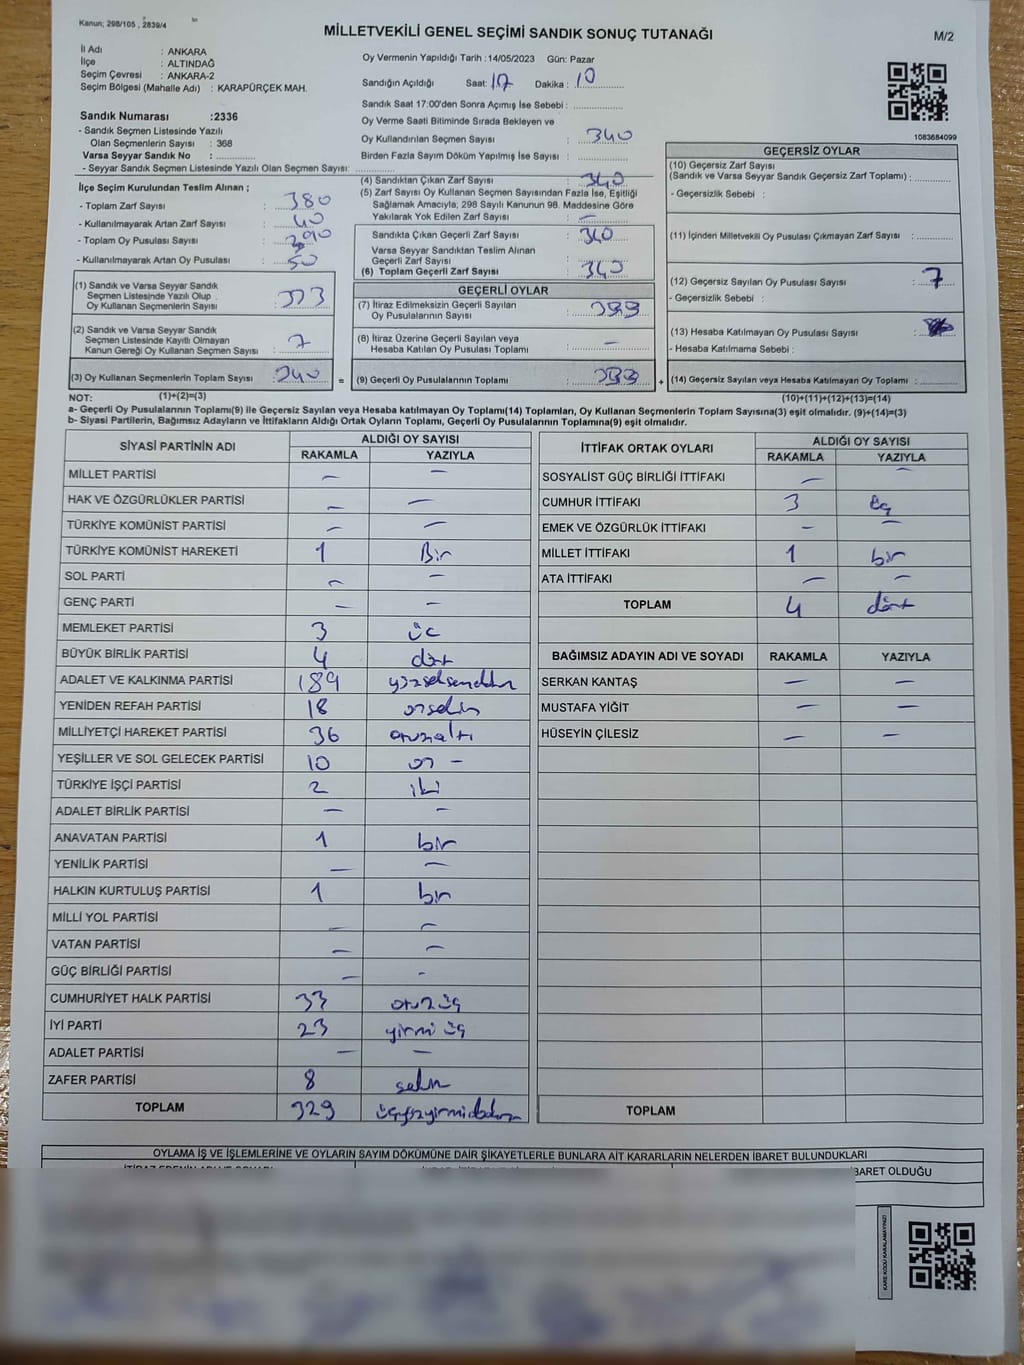 Kanun; 298/105 , 2839/4
MİLLETVEKİLİ GENEL SEÇİMİ SANDIK SONUÇ TUTANAĞI
M/2
İl Adı : ANKARA
İlçe : ALTINDAĞ
Seçim Çevresi : ANKARA-2
Seçim Bölgesi (Mahalle Adı) : KARAPÜRÇEK MAH.
Sandık Numarası :2336
- Sandık Seçmen Listesinde Yazılı
Olan Seçmenlerin Sayısı : 368
Varsa Seyyar Sandık No :
- Seyyar Sandık Seçmen Listesinde Yazılı Olan Seçmen Sayısı:
İlçe Seçim Kurulundan Teslim Alınan ;
- Toplam Zarf Sayısı : 380
- Kullanılmayarak Artan Zarf Sayısı : 40
- Toplam Oy Pusulası Sayısı : 390
- Kullanılmayarak Artan Oy Pusulası : 50
(1) Sandık ve Varsa Seyyar Sandık
Seçmen Listesinde Yazılı Olup
Oy Kullanan Seçmenlerin Sayısı : 333
(2) Sandık ve Varsa Seyyar Sandık
Seçmen Listesinde Kayıtlı Olmayan
Kanun Gereği Oy Kullanan Seçmen Sayısı : 7
(3) Oy Kullanan Seçmenlerin Toplam Sayısı : 340 =
Oy Vermenin Yapıldığı Tarih : 14/05/2023 Gün: Pazar
Sandığın Açıldığı Saat: 17 Dakika : 10
Sandık Saat 17:00'den Sonra Açmış İse Sebebi :
Oy Verme Saati Bitiminde Sırada Bekleyen ve
Oy Kullandırılan Seçmen Sayısı : 340
Birden Fazla Sayım Döküm Yapılmış İse Sayısı :
(4) Sandıktan Çıkan Zarf Sayısı : 340
(5) Zarf Sayısı Oy Kullanan Seçmen Sayısından Fazla İse, Eşitliği
Sağlamak Amacıyla; 298 Sayılı Kanunun 98. Maddesine Göre
Yakılarak Yok Edilen Zarf Sayısı : –
Sandıkta Çıkan Geçerli Zarf Sayısı : 340
Varsa Seyyar Sandıktan Teslim Alınan
Geçerli Zarf Sayısı
(6) Toplam Geçerli Zarf Sayısı : 340
GEÇERLİ OYLAR
(7) İtiraz Edilmeksizin Geçerli Sayılan
Oy Pusulalarının Sayısı : 333
(8) İtiraz Üzerine Geçerli Sayılan veya
Hesaba Katılan Oy Pusulası Toplamı : –
(9) Geçerli Oy Pusulalarının Toplamı : 333 +
1083684099
GEÇERSİZ OYLAR
(10) Geçersiz Zarf Sayısı
(Sandık ve Varsa Seyyar Sandık Geçersiz Zarf Toplamı) :
- Geçersizlik Sebebi :
(11) İçinden Milletvekili Oy Pusulası Çıkmayan Zarf Sayısı :
(12) Geçersiz Sayılan Oy Pusulası Sayısı : 7
- Geçersizlik Sebebi :
(13) Hesaba Katılmayan Oy Pusulası Sayısı :
- Hesaba Katılmama Sebebi :
(14) Geçersiz Sayılan veya Hesaba Katılmayan Oy Toplamı :
NOT: (1)+(2)=(3) (10)+(11)+(12)+(13)=(14)
a- Geçerli Oy Pusulalarının Toplamı(9) ile Geçersiz Sayılan veya Hesaba katılmayan Oy Toplamı(14) Toplamları, Oy Kullanan Seçmenlerin Toplam Sayısına(3) eşit olmalıdır. (9)+(14)=(3)
b- Siyasi Partilerin, Bağımsız Adayların ve İttifakların Aldığı Ortak Oyların Toplamı, Geçerli Oy Pusulalarının Toplamına(9) eşit olmalıdır.
SİYASİ PARTİNİN ADI ALDIĞI OY SAYISI
RAKAMLA YAZIYLA
MİLLET PARTİSİ – –
HAK VE ÖZGÜRLÜKLER PARTİSİ – –
TÜRKİYE KOMÜNİST PARTİSİ – –
TÜRKİYE KOMÜNİST HAREKETİ 1 Bir
SOL PARTİ – –
GENÇ PARTİ – –
MEMLEKET PARTİSİ 3 üc
BÜYÜK BİRLİK PARTİSİ 4 dört
ADALET VE KALKINMA PARTİSİ 189
YENİDEN REFAH PARTİSİ 18 onsekiz
MİLLİYETÇİ HAREKET PARTİSİ 36 otuzaltı
YEŞİLLER VE SOL GELECEK PARTİSİ 10 on –
TÜRKİYE İŞÇİ PARTİSİ 2 iki
ADALET BİRLİK PARTİSİ – –
ANAVATAN PARTİSİ 1 bir
YENİLİK PARTİSİ – –
HALKIN KURTULUŞ PARTİSİ 1 bir
MİLLİ YOL PARTİSİ – –
VATAN PARTİSİ – –
GÜÇ BİRLİĞİ PARTİSİ – -
CUMHURİYET HALK PARTİSİ 33 otuz üç
İYİ PARTİ 23 yirmi üç
ADALET PARTİSİ – –
ZAFER PARTİSİ 8 sekiz
TOPLAM 329 üçyüzyirmidokuz
İTTİFAK ORTAK OYLARI ALDIĞI OY SAYISI
RAKAMLA YAZIYLA
SOSYALİST GÜÇ BİRLİĞİ İTTİFAKI – –
CUMHUR İTTİFAKI 3 üç
EMEK VE ÖZGÜRLÜK İTTİFAKI – –
MİLLET İTTİFAKI 1 bir
ATA İTTİFAKI – –
TOPLAM 4 dört
BAĞIMSIZ ADAYIN ADI VE SOYADI RAKAMLA YAZIYLA
SERKAN KANTAŞ – –
MUSTAFA YİĞİT – –
HÜSEYİN ÇİLESİZ – –
TOPLAM
OYLAMA İŞ VE İŞLEMLERİNE VE OYLARIN SAYIM DÖKÜMÜNE DAİR ŞİKAYETLERLE BUNLARA AİT KARARLARIN NELERDEN İBARET BULUNDUKLARI
İBARET OLDUĞU
KARE KODU KARALAMAYINIZ!